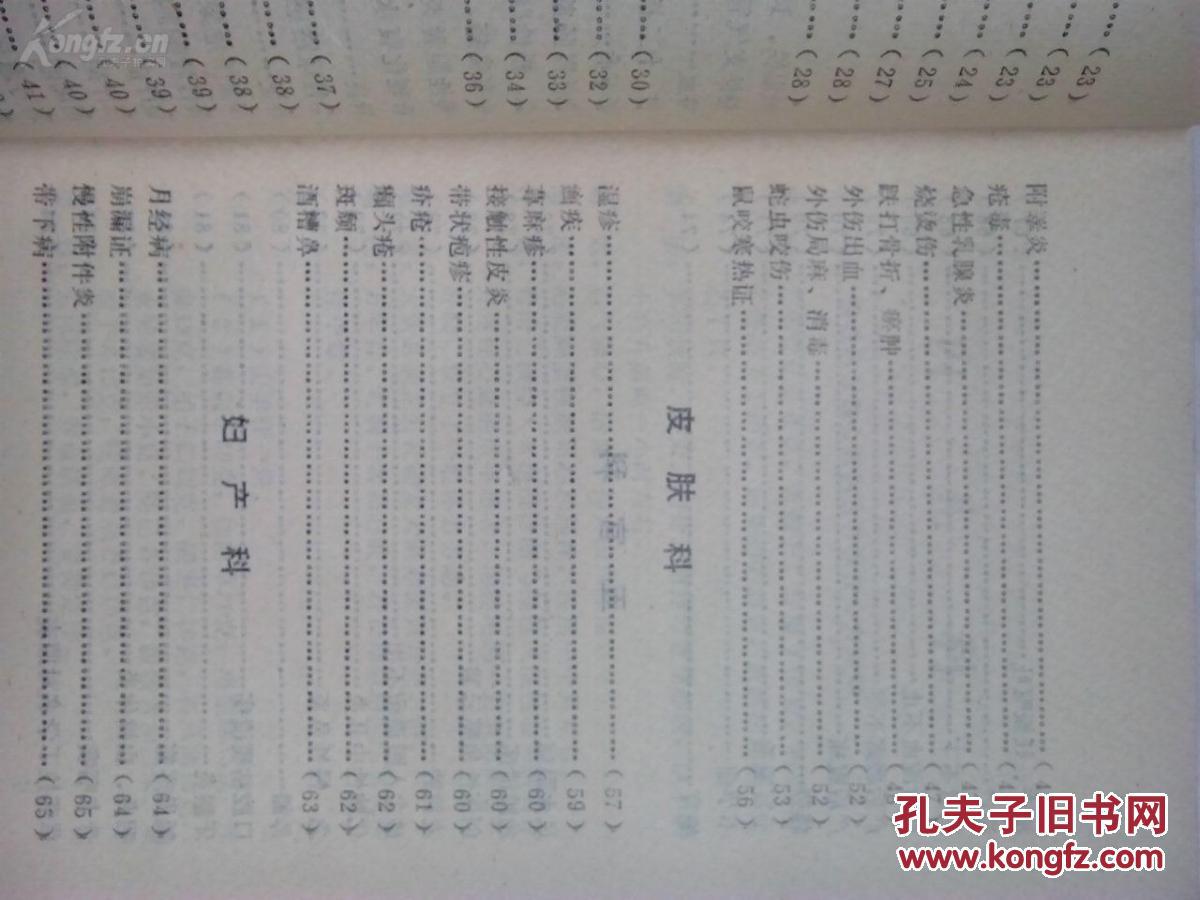 (23)
(23)
(23)
(24)
(25)
(27)
(28)
(28)
(30)
(32)
(33)
(34)
(36)
(37)
(38)
(38)
(39)
(39)
(40)
(40)
(41)
附睾炎……(4
疮毒……(4
急性乳腺炎……(4
烧烫伤……(4
跌打骨折、瘀肿……(4
外伤出血……(52)
外伤局麻、消毒……(52)
蛇虫咬伤……(53)
鼠咬寒热证……(56)
皮肤科
湿疹……(57)
癣疾……(59)
荨麻疹……(60)
接触性皮炎……(60)
带状疱疹……(60)
疥疮……(61)
瘌头疮……(62)
斑颓……(62)
酒糟鼻……(63)
妇产科
月经病……(64)
崩漏证……(64)
慢性附件炎……(65)
带下病……(65)
Kongfz.cn
孔夫子旧书网
www.kongfz.com